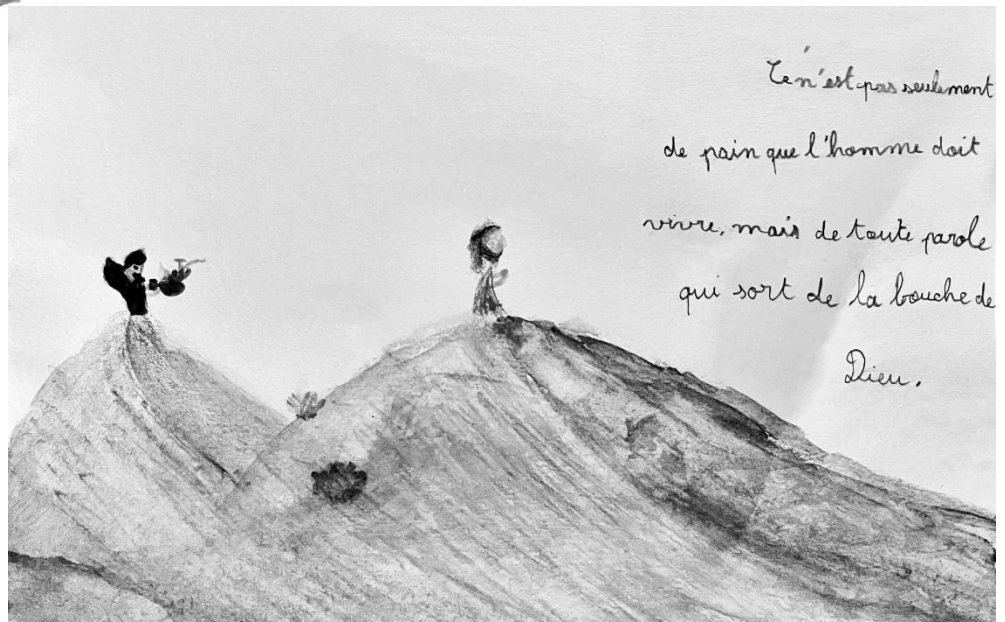 Ce n'est pas seulement
de pain que l'homme doit
vivre, mais de toute parole
qui sort de la bouche de
Dieu.